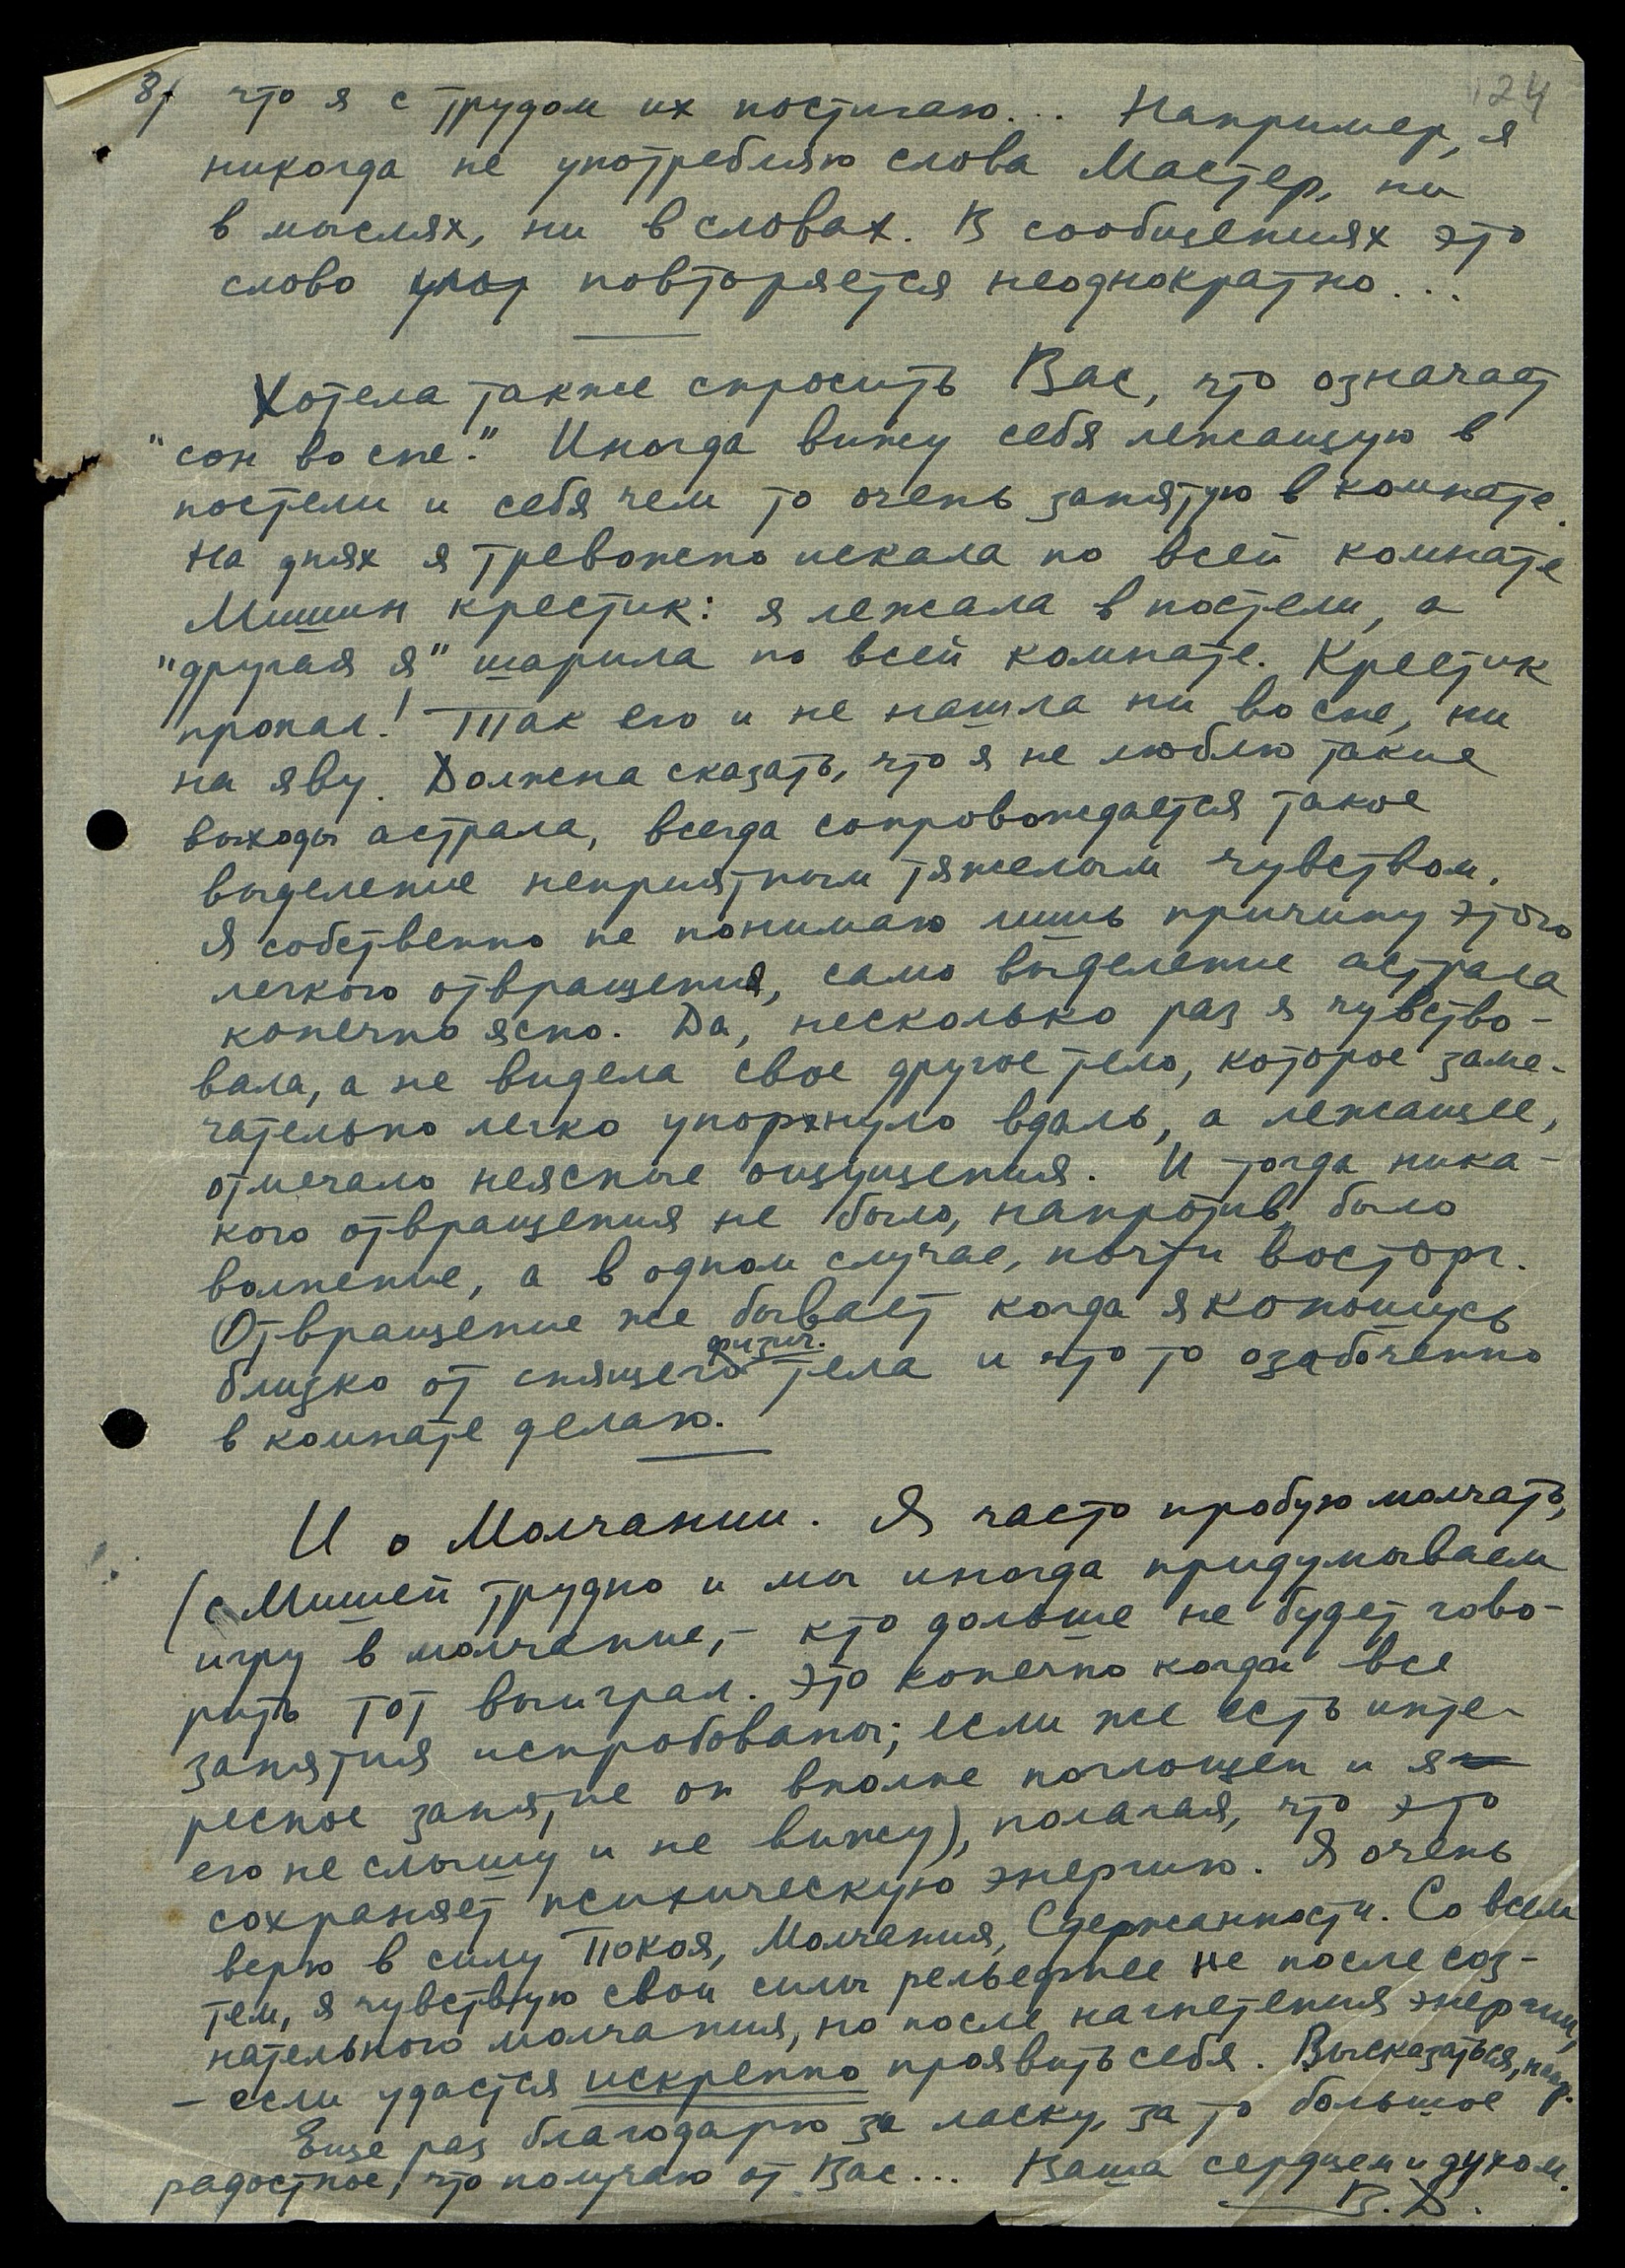 8/ что я с трудом их постигаю... Например, я 124
никогда не употребляю слова Мастер, ни
в мыслях, ни в словах. В сообщениях это
слово повторяется неоднократно...
Хотела также спросить Вас, что означает
"сон во сне." Иногда вижу себя лежащую в
постели и себя чем то очень занятую в комнате.
На днях я тревожно искала по всей комнате
Мишин крестик: я лежала в постели, а
"другая я" шарила по всей комнате. Крестик
пропал! Так его и не нашла ни во сне, ни
на яву. Должна сказать, что я не люблю такие
выходы астрала, всегда сопровождается такое
выделение неприятным тяжелым чувством.
Я собственно не понимаю лишь причину этого
легкого отвращения, само выделение астрала
конечно ясно. Да, несколько раз я чувство-
вала, а не видела свое другое тело, которое заме-
чательно легко упорхнуло вдаль, а лежащее,
отмечало неясные ощущения. И тогда ника-
кого отвращения не было, напротив, было
волнение, а в одном случае, почти восторг.
Отвращение же бывает когда я копошусь
близко от спящего физич. тела и что то озабоченно
в комнате делаю.
И о Молчании. Я часто пробую молчать,
(с Мишей трудно и мы иногда придумываем
игру в молчание, - кто дольше не будет гово-
рить тот выиграл. Это конечно когда все
занятия испробованы; если же есть инте-
ресное занятие он вполне поглощен и я
его не слышу и не вижу), полагая, что это
сохраняет психическую энергию. Я очень
верю в силу Покоя, Молчания, Сдержанности. Со всем
тем, я чувствую свои силы рельефнее не после соз-
нательного молчания, но после нагнетения энергии,
- если удастся искренно проявить себя. Высказаться, напр.
Еще раз благодарю за ласку, за то большое
радостное, что получаю от Вас... Ваша сердцем и духом.
В.Д.